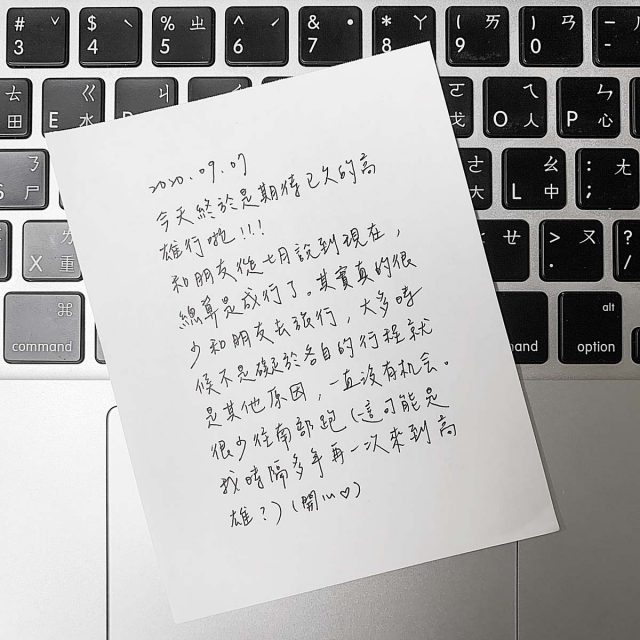 # ㄓ 3
$ ˋ 4
% ㄓ 5
^ ˊ 6
& ˙ 7
* ㄚ 8
( ㄞ 9
) ㄢ 0
ㄊ 田
E ㄍ 水
ㄐ
ㄟ O 人
ㄣ P 心
ㄋ S 尸
ㄠ L 中
: ㄤ ;
ㄌ X 重
ㄝ
> ㄡ .
?
⌘ command
alt option
2020.09.07
今天終於是期待已久的高
雄行啦!!!
和朋友從七月說到現在,
總算是成行了。其實真的很
少和朋友去旅行,大多時
候不是礙於各自的行程就
是其他原因,一直沒有机会。
很少往南部跑(這可能是
我時隔多年再一次來到高
雄?)(開心♡)